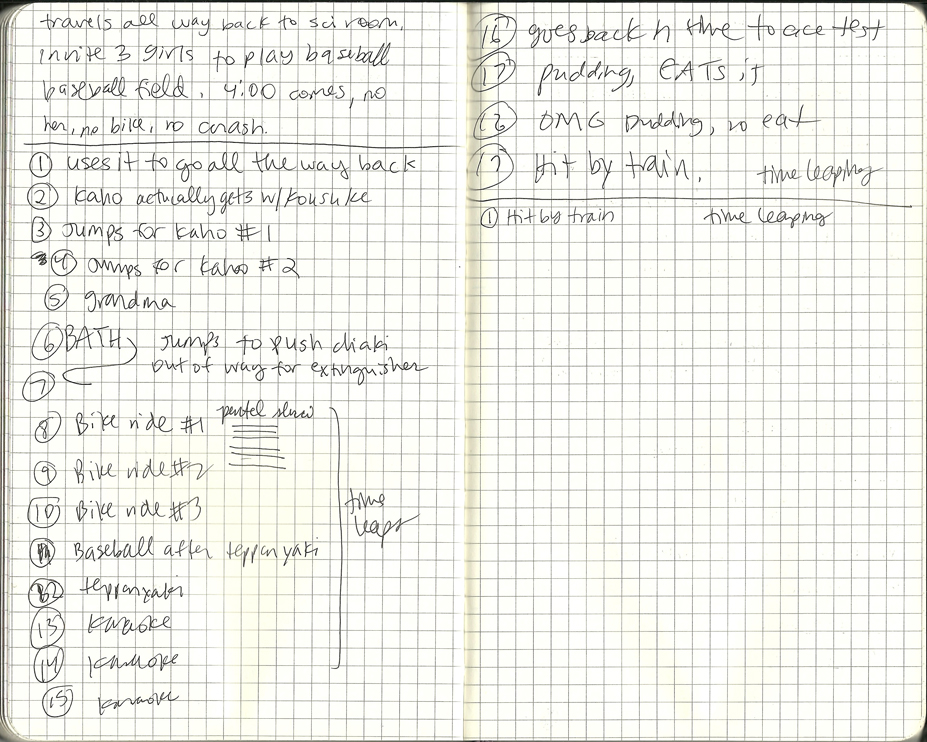 travels all way back to sci room,
invite 3 girls to play baseball
baseball field. 4:00 comes, no
her, no bike, no crash.
① uses it to go all the way back
② Kaho actually gets w/ Kousuke
③ Jumps for Kaho #1
④ Jumps for Kaho #2
⑤ grandma
⑥ BATH Jumps to push chiaki
out of way for extinguisher
⑦
⑧ Bike ride #1 pentel slicci
⑨ Bike ride #2
⑩ Bike ride #3
time
leaps
⑪ Baseball after teppanyaki
⑫ teppanyaki
⑬ Karaoke
⑭ Karaoke
⑮ Karaoke
⑯ goes back n time to ace test
⑰ pudding, EATS it
⑱ OMG pudding, no eat
⑲ Hit by train. time leaping
① Hit by train time leaping